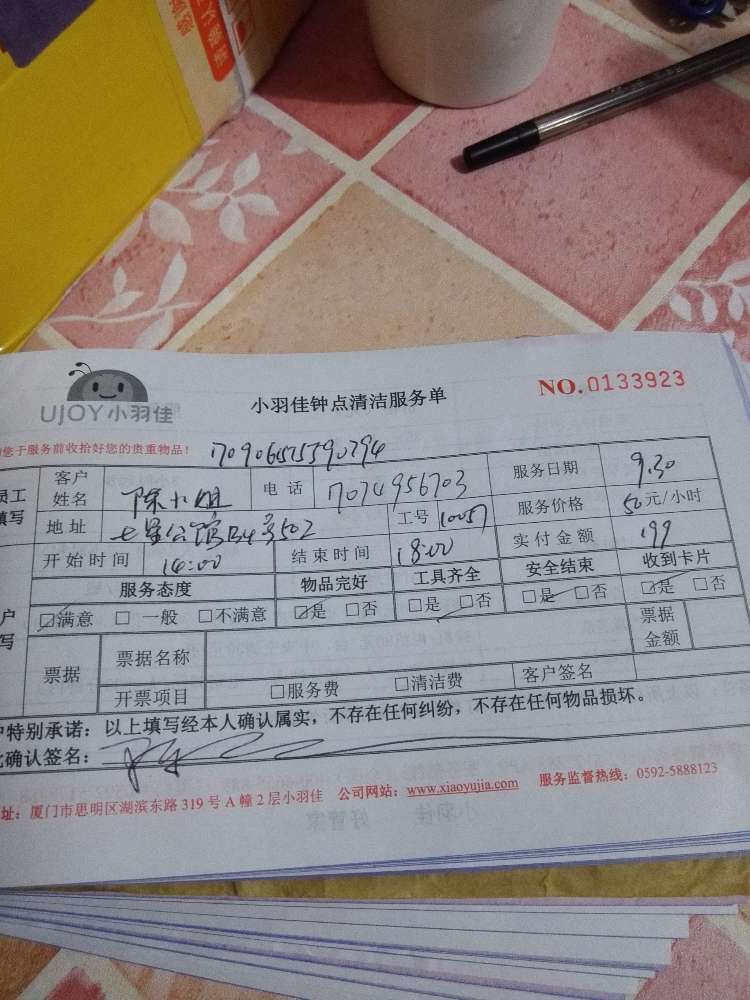 UJOY小羽佳
小羽佳钟点清洁服务单
NO.0133923
您于服务前收拾好您的贵重物品!
员工填写 客户姓名 陈小姐 电话 7074956703 服务日期 9.30
地址 七星公馆B4号502 工号 10057 服务价格 50元/小时
开始时间 14:00 结束时间 18:00 实付金额 199
服务态度 物品完好 工具齐全 安全结束 收到卡片
☑满意 □一般 □不满意 ☑是 □否 □是 □否 □是 □否 □是 □否
票据 票据名称 票据金额
开票项目 □服务费 □清洁费 客户签名
户特别承诺：以上填写经本人确认属实，不存在任何纠纷，不存在任何物品损坏。
此确认签名：
址：厦门市思明区湖滨东路319号A幢2层小羽佳 公司网站：www.xiaoyujia.com 服务监督热线：0592-5888123